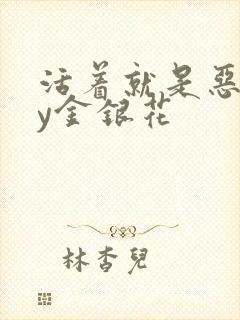 活着就是恶
y金银花
林杏兒